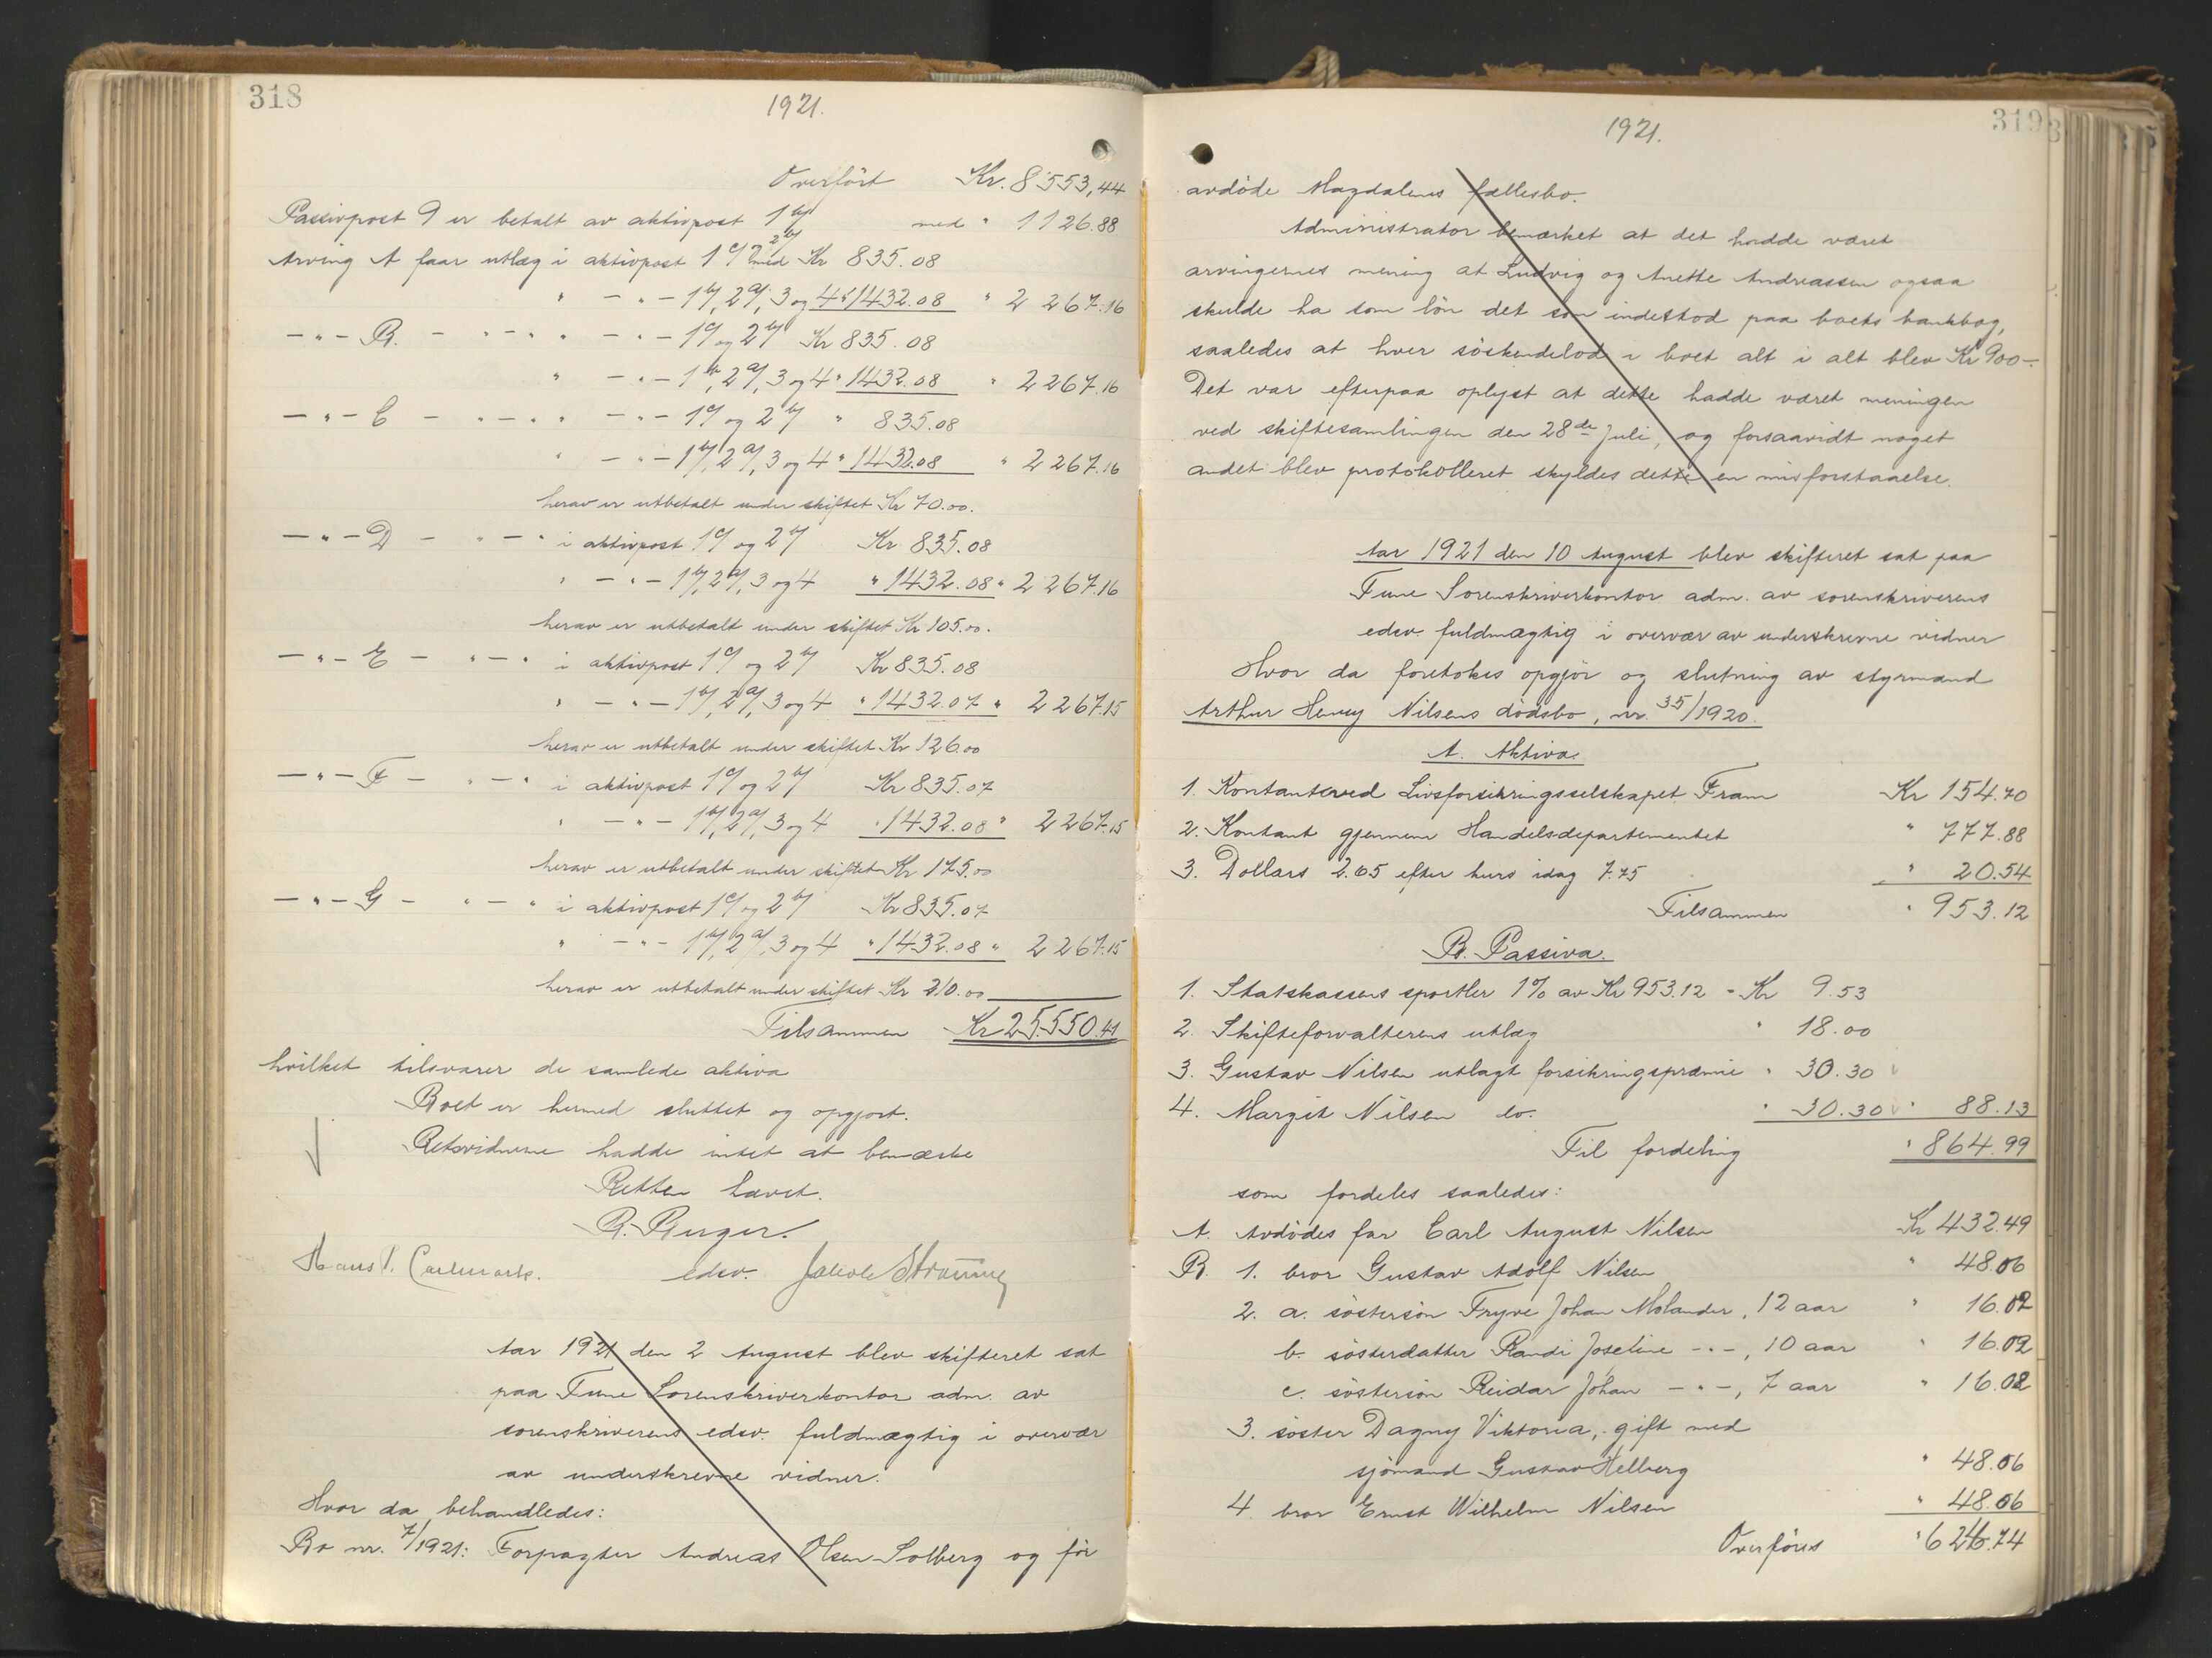 318
1921.
Overført Kr. 8553,44
Passivpost 9 er betalt av aktivpost 1 b/ med " 1126.88
Arving A faar utlæg i aktivpost 1 c/ og 2 b/ med Kr 835.08
" - " - 1 b/, 2 a/, 3 og 4 " 1432.08 " 2267.16
- " - B. - " - " " - " - 1 c/ og 2 b/ Kr 835.08
" - " - 1 b/, 2 a/, 3 og 4 " 1432.08 " 2267.16
- " - C - " - " " - " - 1 c/ og 2 b/ " 835.08
" - " - 1 b/, 2 a/, 3 og 4 " 1432.08 " 2267.16
herav er utbetalt under skiftet Kr 70.00.
- " - D - " - " i aktivpost 1 c/ og 2 b/ Kr 835.08
" - " - 1 b/, 2 a/, 3 og 4 " 1432.08 " 2267.16
herav er utbetalt under skiftet Kr 105.00.
- " - E - " - " i aktivpost 1 c/ og 2 b/ Kr 835.08
" - " - 1 b/, 2 a/, 3 og 4 " 1432.07 " 2267.15
herav er utbetalt under skiftet Kr 126.00
- " - F - " - " i aktivpost 1 c/ og 2 b/ Kr 835.07
" - " - 1 b/, 2 a/, 3 og 4 " 1432.08 " 2267.15
herav er utbetalt under skiftet Kr 175.00
- " - G - " - " i aktivpost 1 c/ og 2 b/ Kr 835.07
" - " - 1 b/, 2 a/, 3 og 4 " 1432.08 " 2267.15
herav er utbetalt under skiftet Kr 210.00
Tilsammen Kr 25.550.41
hvilket tilsvarer de samlede aktiva
Boet er hermed sluttet og opgjort.
Retsvidnerne hadde intet at bemærke
Retten hævet.
R. Berger.
Hans edsv. Jakob
Aar 1921 den 2 August blev skifteret sat
paa Tune Sorenskriverkontor adm. av
sorenskriverens edsv. fuldmægtig i overvær
av underskrevne vidner.
Hvor da behandledes:
Bo nr. 7/1921: Forpagter Andreas Olsen Solberg og før
319
1921.
avdöde Magdalenes fællesbo.
Administrator bemærket at det hadde været
arvingernes mening at Ludvig og Anette Andreassen ogsaa
skulde ha som lön det som indestod paa boets bankbog,
saaledes at hver söskendelod i boet alt i alt blev Kr 900-.
Det var efterpaa oplyst at dette hadde været meningen
ved skiftesamlingen den 28de Juli, og forsaavidt noget
andet blev protokolleret skyldes dette en misforstaaelse.
Aar 1921 den 10 August blev skifteret sat paa
Tune Sorenskriverkontor adm. av sorenskriverens
edsv. fuldmægtig i overvær av underskrevne vidner
Hvor da foretokes opgjör og slutning av styrmand
Arthur Henry Nilsens dödsbo, nr. 35/1920.
A. Aktiva.
1. Kontanter ved Livsforsikringsselskapet Fram Kr 154.70
2. Kontant gjennem Handelsdepartementet " 777.88
3. Dollars 2.65 efter kurs idag 7.75 " 20.54
Tilsammen " 953.12
B. Passiva.
1. Statskassens sportler 1% av Kr 953.12 - Kr 9.53
2. Skifteforvalterens utlæg " 18.00
3. Gustav Nilsen utlagt forsikringspræmie " 30.30
4. Margit Nilsen do. " 30.30 " 88.13
Til fordeling " 864.99
som fordeles saaledes:
A. Avdödes far Carl August Nilsen Kr 432.49
B. 1. bror Gustav Adolf Nilsen " 48.06
2. a. söstersön Trygve Johan Molander, 12 aar " 16.02
b. sösterdatter Randi Joseline - " -, 10 aar " 16.02
c. söstersön Reidar Johan - " -, 7 aar " 16.02
3. söster Dagny Viktoria, gift med
sjömand Gustav Helberg " 48.06
4. bror Ernst Wilhelm Nilsen " 48.06
Overföres